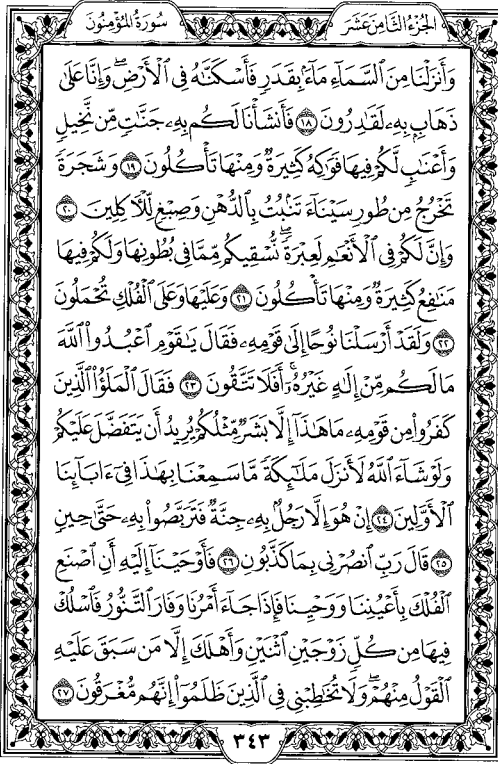 الجزء الثامن عشر
سورة المؤمنون
وَأَنزَلْنَا مِنَ السَّمَاءِ مَاءً بِقَدَرٍ فَأَسْكَنَّاهُ فِي الْأَرْضِ ۖ وَإِنَّا عَلَىٰ
ذَهَابٍ بِهِ لَقَادِرُونَ ١٨ فَأَنشَأْنَا لَكُم بِهِ جَنَّاتٍ مِّن نَّخِيلٍ
وَأَعْنَابٍ لَّكُمْ فِيهَا فَوَاكِهُ كَثِيرَةٌ وَمِنْهَا تَأْكُلُونَ ١٩ وَشَجَرَةً
تَخْرُجُ مِن طُورِ سَيْنَاءَ تَنبُتُ بِالدُّهْنِ وَصِبْغٍ لِّلْآكِلِينَ ٢٠
وَإِنَّ لَكُمْ فِي الْأَنْعَامِ لَعِبْرَةً ۖ نُّسْقِيكُم مِّمَّا فِي بُطُونِهَا وَلَكُمْ فِيهَا
مَنَافِعُ كَثِيرَةٌ وَمِنْهَا تَأْكُلُونَ ٢١ وَعَلَيْهَا وَعَلَى الْفُلْكِ تُحْمَلُونَ
٢٢ وَلَقَدْ أَرْسَلْنَا نُوحًا إِلَىٰ قَوْمِهِ فَقَالَ يَا قَوْمِ اعْبُدُوا اللَّهَ
مَا لَكُم مِّنْ إِلَٰهٍ غَيْرُهُ ۖ أَفَلَا تَتَّقُونَ ٢٣ فَقَالَ الْمَلَؤُا الَّذِينَ
كَفَرُوا مِن قَوْمِهِ مَا هَٰذَا إِلَّا بَشَرٌ مِّثْلُكُمْ يُرِيدُ أَن يَتَفَضَّلَ عَلَيْكُمْ
وَلَوْ شَاءَ اللَّهُ لَأَنزَلَ مَلَائِكَةً مَّا سَمِعْنَا بِهَٰذَا فِي آبَائِنَا
الْأَوَّلِينَ ٢٤ إِنْ هُوَ إِلَّا رَجُلٌ بِهِ جِنَّةٌ فَتَرَبَّصُوا بِهِ حَتَّىٰ حِينٍ
٢٥ قَالَ رَبِّ انصُرْنِي بِمَا كَذَّبُونِ ٢٦ فَأَوْحَيْنَا إِلَيْهِ أَنِ اصْنَعِ
الْفُلْكَ بِأَعْيُنِنَا وَوَحْيِنَا فَإِذَا جَاءَ أَمْرُنَا وَفَارَ التَّنُّورُ فَاسْلُكْ
فِيهَا مِن كُلٍّ زَوْجَيْنِ اثْنَيْنِ وَأَهْلَكَ إِلَّا مَن سَبَقَ عَلَيْهِ
الْقَوْلُ مِنْهُمْ ۖ وَلَا تُخَاطِبْنِي فِي الَّذِينَ ظَلَمُوا إِنَّهُم مُّغْرَقُونَ ٢٧
٣٤٣